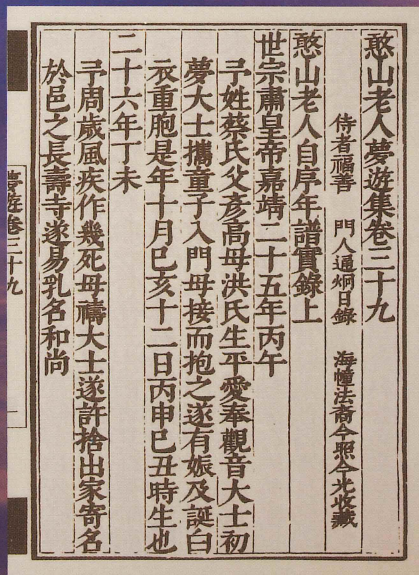 憨山老人夢遊集卷三十九
侍者福善　門人通炯日錄　海幢法裔今照今光收藏
憨山老人自序年譜實錄上
世宗肅皇帝嘉靖二十五年丙午
予姓蔡氏父彥高母洪氏生平愛奉觀音大士初
夢大士攜童子入門母接而抱之遂有娠及誕白
衣重胞是年十月己亥十二日丙申己丑時生也
二十六年丁未
予周歲風疾作幾死母禱大士遂許捨出家寄名
於邑之長壽寺遂易乳名和尚
夢遊卷三十九
一